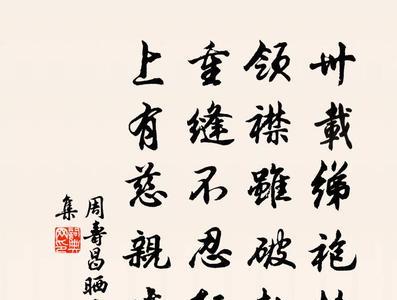 卅載綈袍
領襟雖破
重縫不忍
上有慈親
周壽昌晒
集